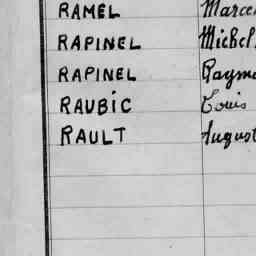 RAMEL Marce
RAPINEL Michel
RAPINEL Raym
RAUBIC Louis
RAULT August